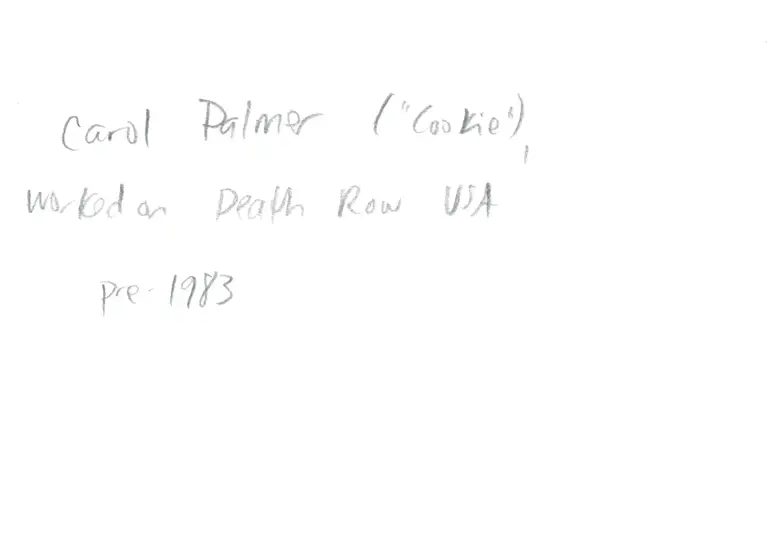 Carol Palmer ("Cookie"),
worked on Death Row USA
pre-1983